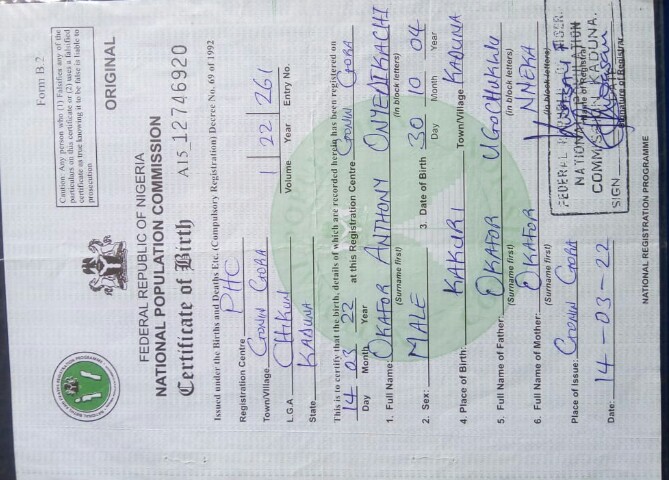 Form B.2
Caution: Any person who (1) Falsifies any of the
particulars on this certificate or (2) uses a falsified
certificate as true knowing it to be false is liable to
prosecution
ORIGINAL
FEDERAL REPUBLIC OF NIGERIA
NATIONAL POPULATION COMMISSION
Certificate of Birth A15 12746920
Issued under the Births and Deaths Etc. (Compulsory Registration) Decree No. 69 of 1992
Registration Centre PHC
Town/Village GONIN GORA
L.G.A CHIKUN 1 22 261
Volume Year Entry No.
State KADUNA
This is to certify that the birth, details of which are recorded herein has been registered on
14 03 22 at this Registration Centre GONIN GORA
Day Month Year
1. Full Name: OKAFOR ANTHONY ONYEDIKACHI
(Surname first) (in block letters)
2. Sex: MALE 3. Date of Birth 30 10 04
Day Month Year
4. Place of Birth: KAKURI Town/Village KADUNA
5. Full Name of Father: OKAFOR UGOCHUKWU
(Surname first) (in block letters)
6. Full Name of Mother: OKAFOR NNEKA
(Surname first) (in block letters)
Place of Issue: GONIN GORA
Date: 14-03-22
FEDERAL
NATIONAL POPULATION
COMMISSION KADUNA.
SIGN
Name of Registrar
Signature of Registrar
NATIONAL REGISTRATION PROGRAMME